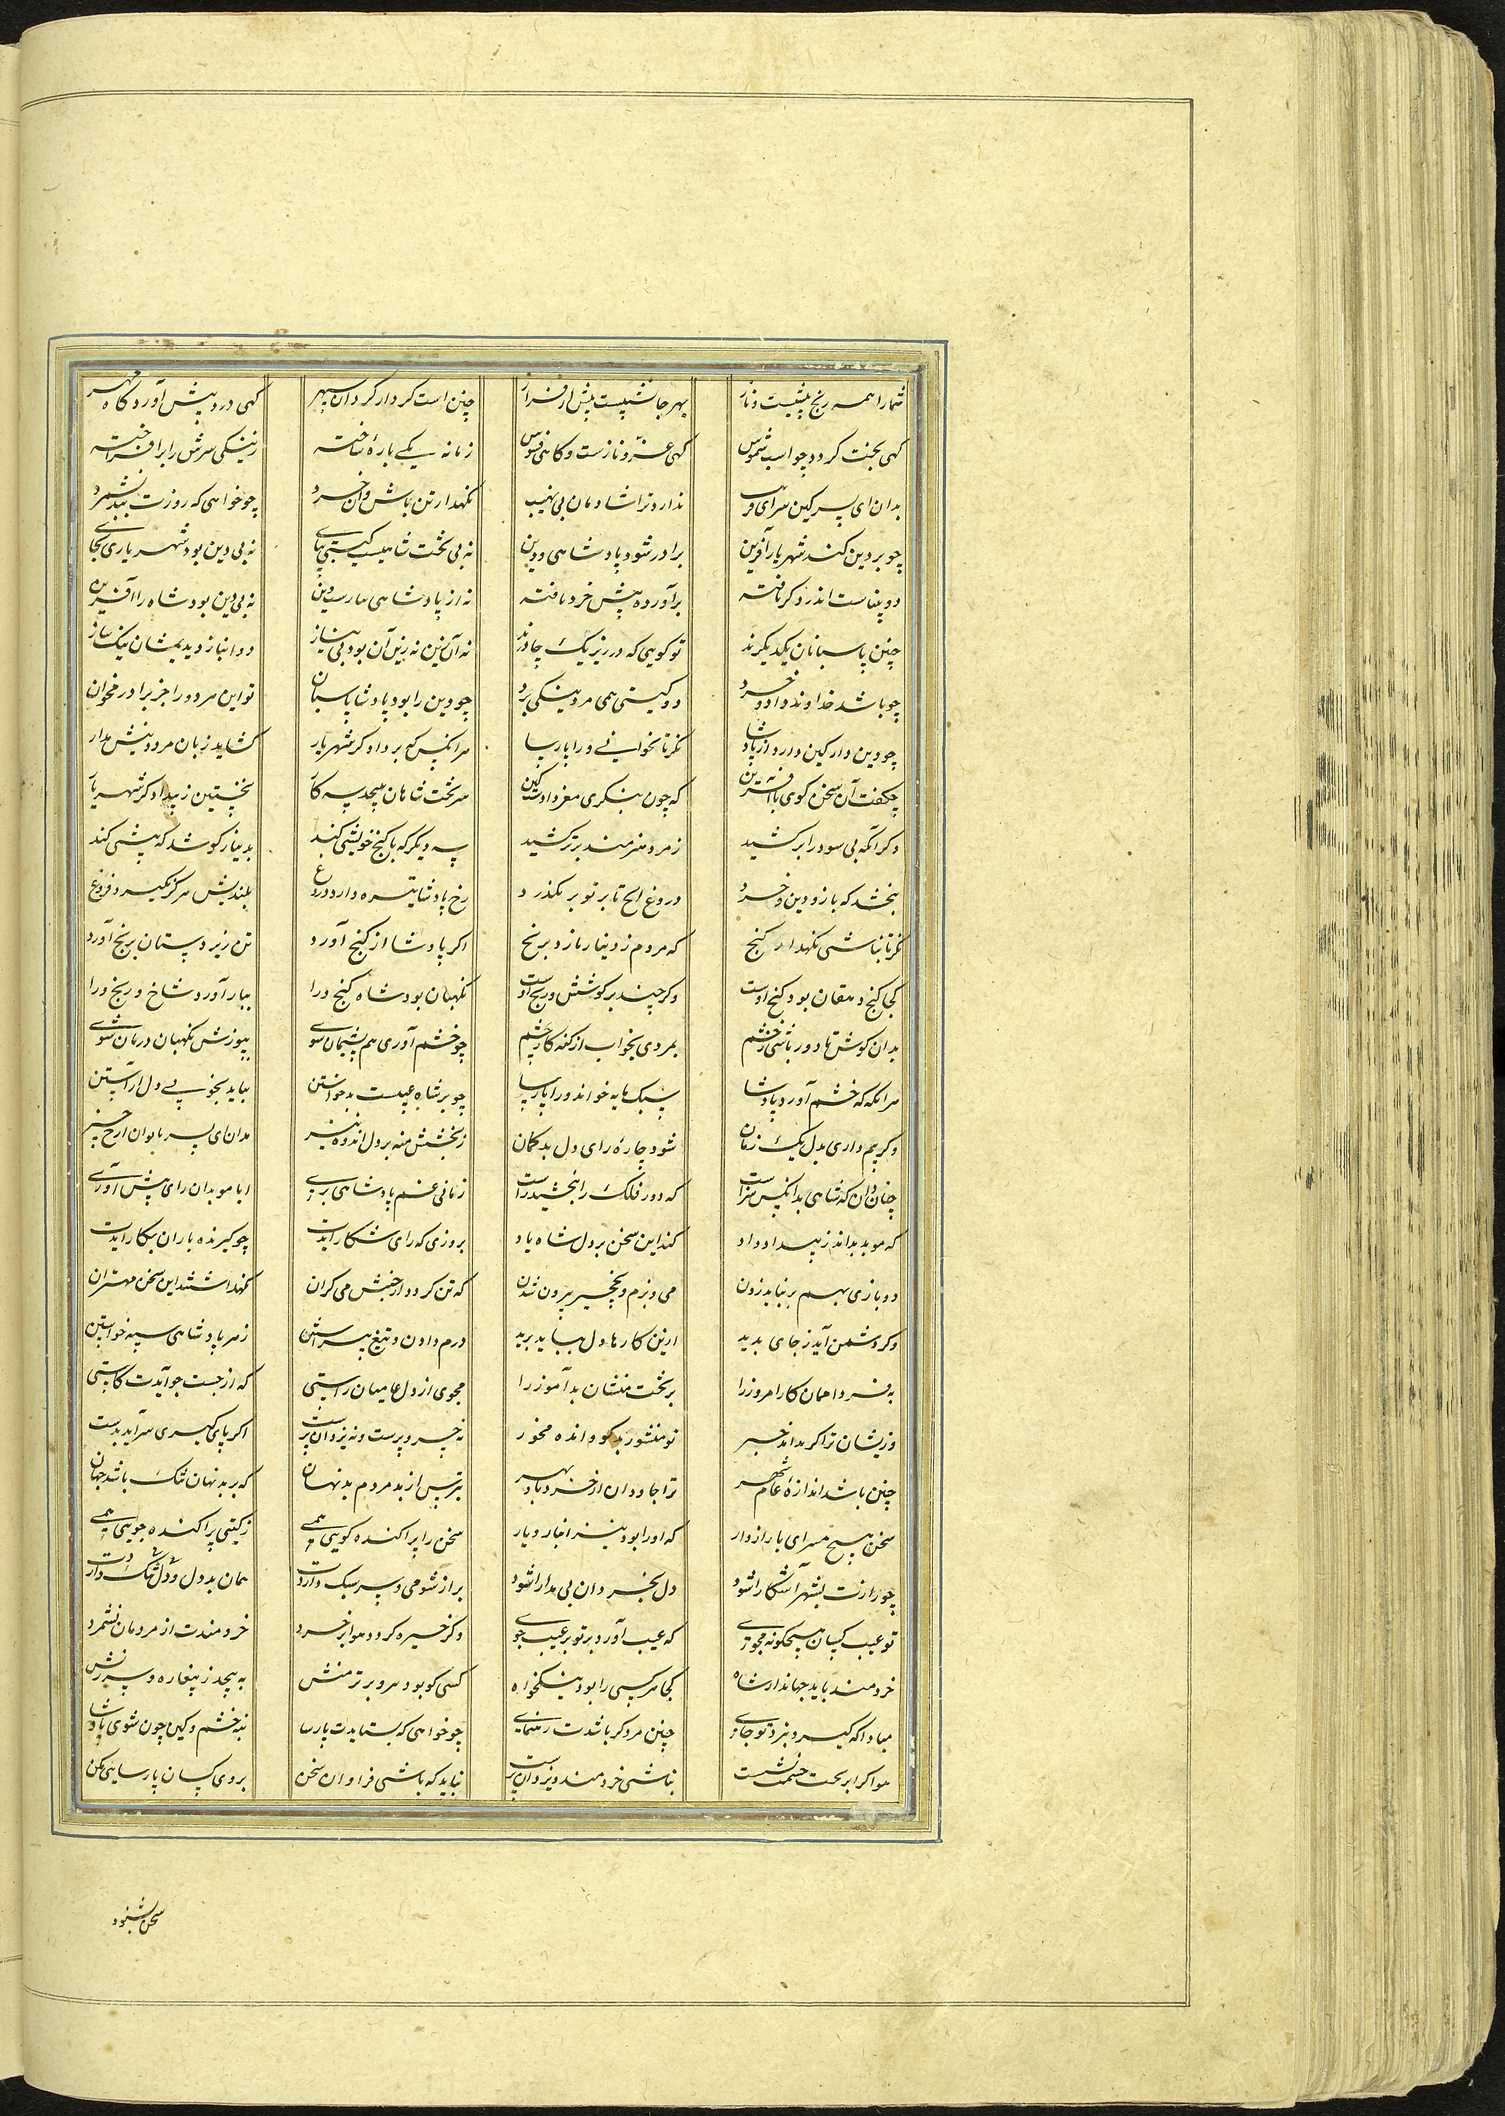 شما را همه رنج پیشست و ناز بهر جا نشیبست پیش از فراز چنین است کردار گردان سپهر گهی درد پیش آورد گاه مهر
گهی بخت گردد چو اسب شموس گهی عز و نازست و گاهی فسوس زمانه یکی باره ساخته ز نیکی سرش را برافراخته
بدان ای پسر کین سرای فریب ندارد ترا شادمان بی نهیب نگهدار تن باش و آن خرد چو خواهی که روزت ببد نشمرد
چو بر دین کند شهریار آفرین برادر شود پادشاهی و دین نه بی تخت شاهیست گیتی بپای نه بی دین بود شهریاری بجای
دو بنیاست اندر دگر بافته برآورده پیش خرد بافته نه از پادشاهی ندارست دین نه بی دین بود شاه را آفرین
چنین پاسبانان یکدیگرند تو گویی که در زیر یک چادرند نه آن زین نه زین آن بود بی نیاز دو انباز دیدیمشان نیک ساز
چو باشد خداوند داد و خرد دو گیتی همی مرد نیکی برد چو دین را بود پادشا پاسبان تو این هر دو را جز برادر مخوان
چو دین دار کین دارد از پادشا نگر تا نخوانی ورا پارسا هر آنکس که بر دادگر شهریار گشاید زبان مرد دینش مدار
چه گفت آن سخن گوی با آفرین که چون بنگری مغز دادست کین سر تخت شاهان بپیچد سه کار نخستین ز بیدادگر شهریار
دگر آنکه بی سود را برکشید ز مرد هنرمند برتر کشید سه دیگر که با گنج خویشی کند بدینار کوشد که بیشی کند
ببخشد که بازو دین و خرد دروغ ایچ تا بر تو بر نگذرد رخ پادشا تیره دارد دروغ بلندیش هرگز نگیرد فروغ
نگر تا نباشی نگهدار گنج که مردم ز دینار یازد برنج اگر پادشا از گنج آورد تن زیردستان برنج آورد
کجا گنج دهقان بود گنج اوست وگر چند بر کوشش و رنج اوست نگهبان بود شاه گنج ورا ببار آورد شاخ و رنج ورا
بدان کوش تا دور باشی ز خشم بمردی بخواب از گنه کار چشم چو خشم آوری هم پشیمان شوی بپوزش نگهبان درمان شوی
هر آنگه که خشم آورد پادشا سبک مایه خواند ورا پارسا چو بر شاه عیبست بد خواستن بباید بخوبی دل آراستن
وگر بیم داری بدل یک زمان شود چاره رای دل بدگمان ز بخشش منه بر دل اندوه نیز بدان ای پسر تا توان ارج چیز
چنان دان که شاهی بدانکس سزاست که دور فلک را ببخشید راست زمانی غم پادشاهی بری ابا موبدان رای پیش آوری
که موبد بداند ز بیداد و داد کند این سخن بر دل شاه یاد بروزی که رای شکار آیدت چو گیرنده بازان بکار آیدت
دو بازی بهم بر نباید زدن می و بزم و نخچیر بیرون شدن که تن گردد از جنبش می گران نگهداشتند این سخن مهتران
وگر دشمن آید ز جای پدید ازین کارها دل بباید برید درم دادن و تیغ پیراستن ز هر پادشاهی سپه خواستن
به فردا ممان کار امروز را بر تخت منشان بدآموز را مجوی از دل عامیان راستی که از جست و جو آیدت کاستی
وزیشان ترا گر بد آید خبر تو مشنو ز بدگو و انده مخور نه خسرو پرست و نه یزدان پرست اگر پای گیری سر آید بدست
چنین باشد اندازه عام شهر ترا جاودان از خرد باد بهر بترس از بد مردم بدنهان که بر بدنهان تنگ باشد جهان
سخن هیچ مسرای با رازدار که او را بود نیز انباز و یار سخن را پراکنده گویی همی ز گیتی پراکنده جویی همی
چو رازت بشهر آشکارا شود دل بخردان بی مدارا شود براز شومی و سر سبک داردت همان بددل و دل تنک داردت
تو عیب کسان هیچگونه مجوی که عیب آورد بر تو بر عیب جوی وگر خیره گردد هوا بر خرد خردمندت از مردمان نشمرد
خردمند باید جهاندار شاه کجا هر کسی را بود نیکخواه کسی کو بود مرد برتر منش به پیچد ز پیغاره و سرزنش
مبادا که گیرد بنزد تو جای چنین مرد گر باشدت رهنمای چو خواهی که بستایدت پارسا بنه خشم و کین چون شوی پادشا
هوا گر بر تخت حشمت نشست نباشی خردمند و یزدان پرست نباید که باشی فراوان سخن بروی کسان پارسایی مکن
سخن بشنود